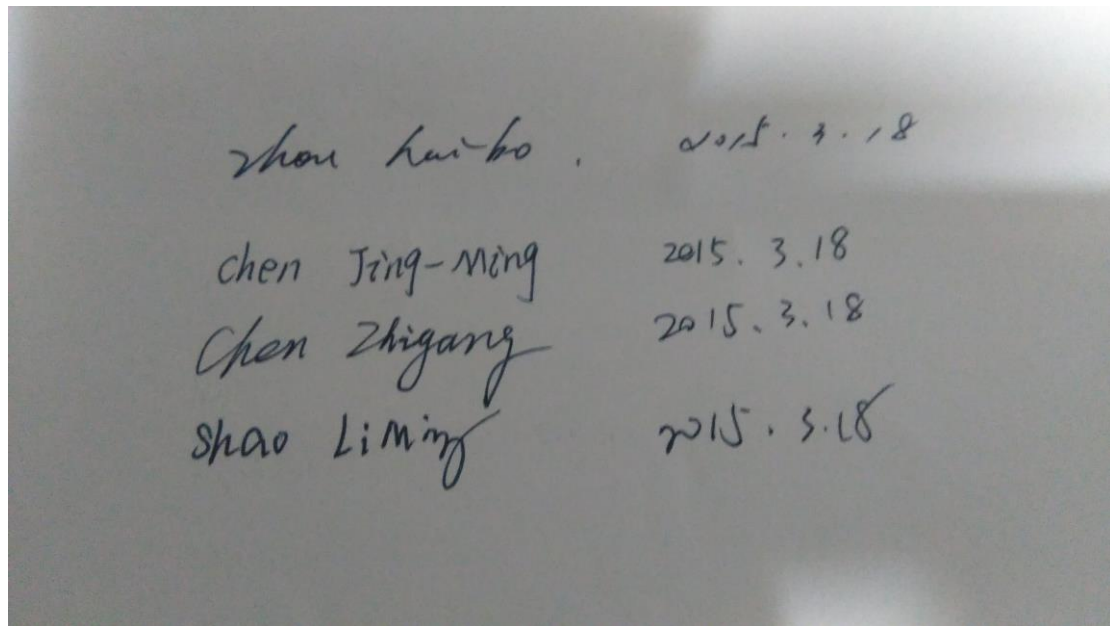 zhou hai-bo. 2015.3.18
chen Jing-Ming 2015.3.18
Chen Zhigang 2015.3.18
Shao LiMing 2015.3.18